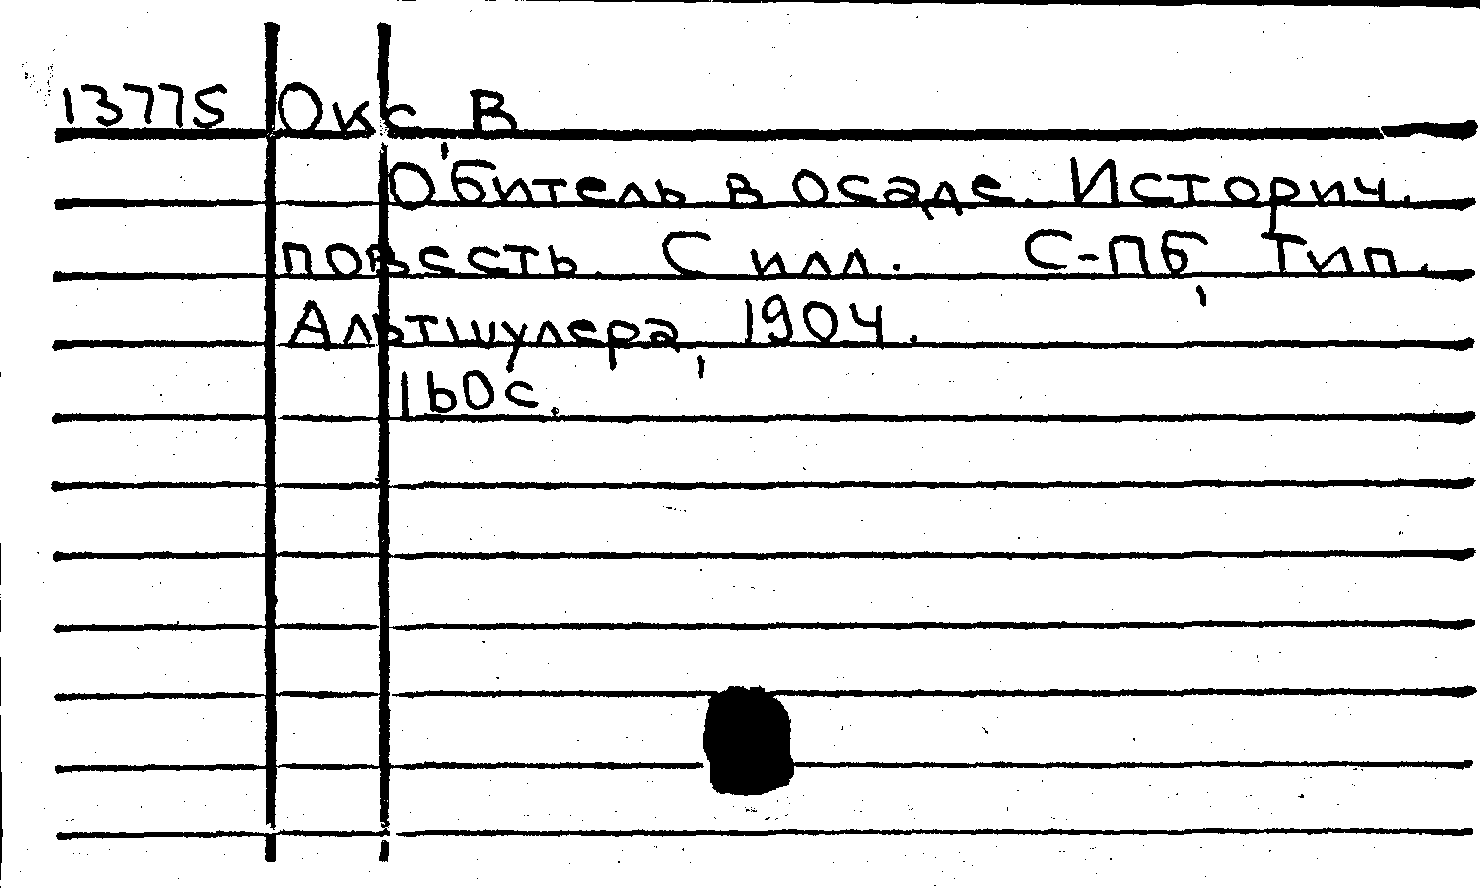 13775 Окс, В
Обитель в осаде. Историч.
повесть. С илл. С-ПБ, Тип.
Альтшулера, 1904.
160с.